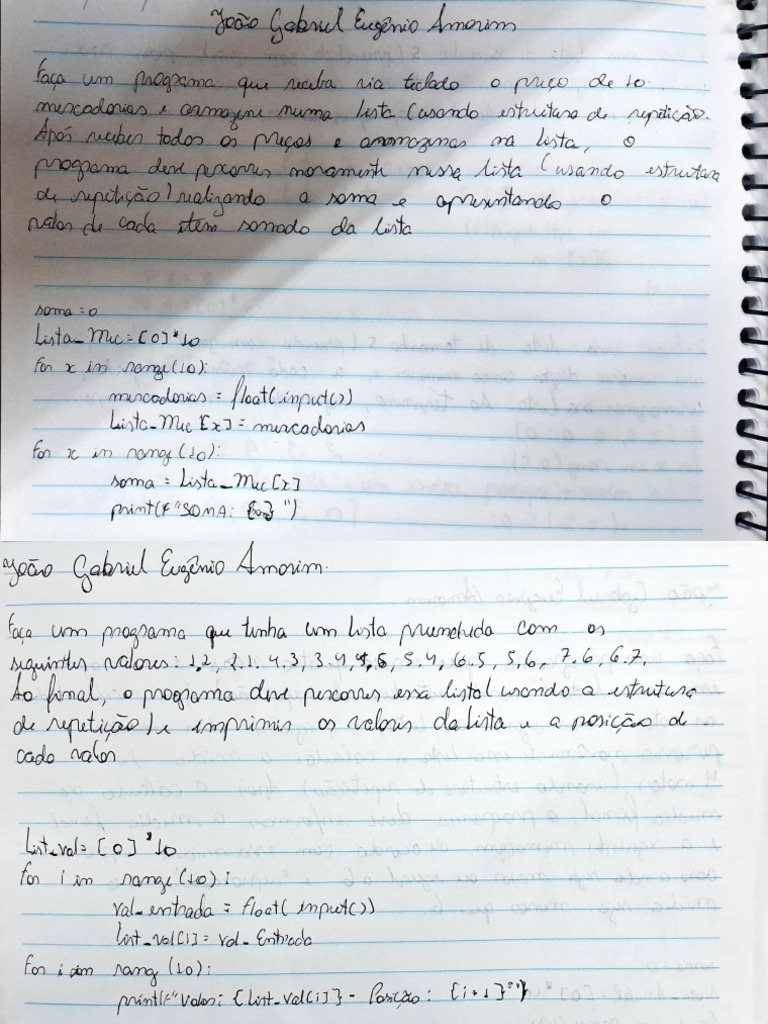 João Gabriel Eugênio Amorim
Faça um programa que receba via teclado o preço de 10
mercadorias e armazene numa lista (usando estrutura de repetição.
Após receber todos os preços e armazenar na lista, o
programa deve percorrer novamente nessa lista (usando estrutura
de repetição) realizando a soma e apresentando o
valor de cada item somado da lista
soma = 0
Lista_Merc = [0]*10
for x in range(10):
mercadorias = float(input())
Lista_Merc[x] = mercadorias
for x in range(10):
soma = Lista_Merc[x]
print(f"SOMA: {x} ")
João Gabriel Eugênio Amorim.
Faça um programa que tenha um lista preenchida com os
seguintes valores: 1.2, 2.1. 4.3, 3.4, 4,5, 5.4, 6.5, 5,6, 7.6, 6.7.
Ao final, o programa deve percorrer essa lista (usando a estrutura
de repetição) e imprimir os valores da lista e a posição de
cada valor
List_val = [0]*10
for i in range(10):
val_entrada = float(input())
list_val[i] = val_Entrada
for i in rang(10):
print(f"Valor: {list_val[i]} - Posição: {i+1}")